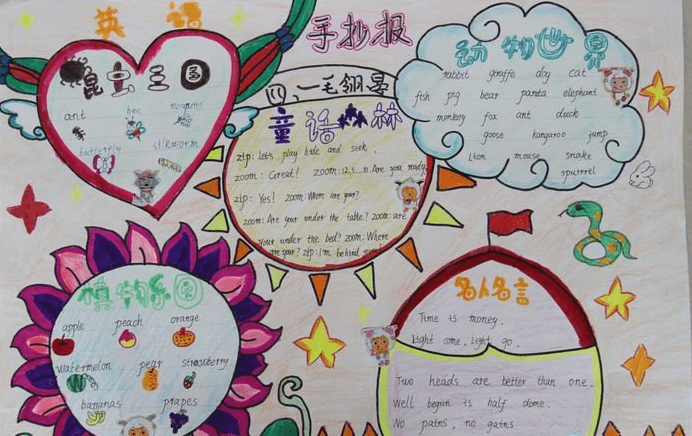 英语
手抄报
昆虫王国
ant bee mosquito
butterfly silkworm
一毛翎景
童话森林
zip: Let's play hide and seek.
zoom: Great! zoom: 1.2.3...10. Are you ready
zip: Yes! zoom: Where are your?
zoom: Are your under the table? zoom: are
your under the bed? zoom: Where
are your? zip: I'm behind
动物世界
rabbit giraffe dog cat
fish pig bear panta elephant
monkey fox ant duck
goose kangaroo jump
Lion mouse snake
squirrel
植物乐园
apple peach orange
watermelon pear strawberry
bananas grapes
名人名言
Time is money.
Light come, Light go.
Two heads are better than one.
Well begun is half dome.
No pains, no gains